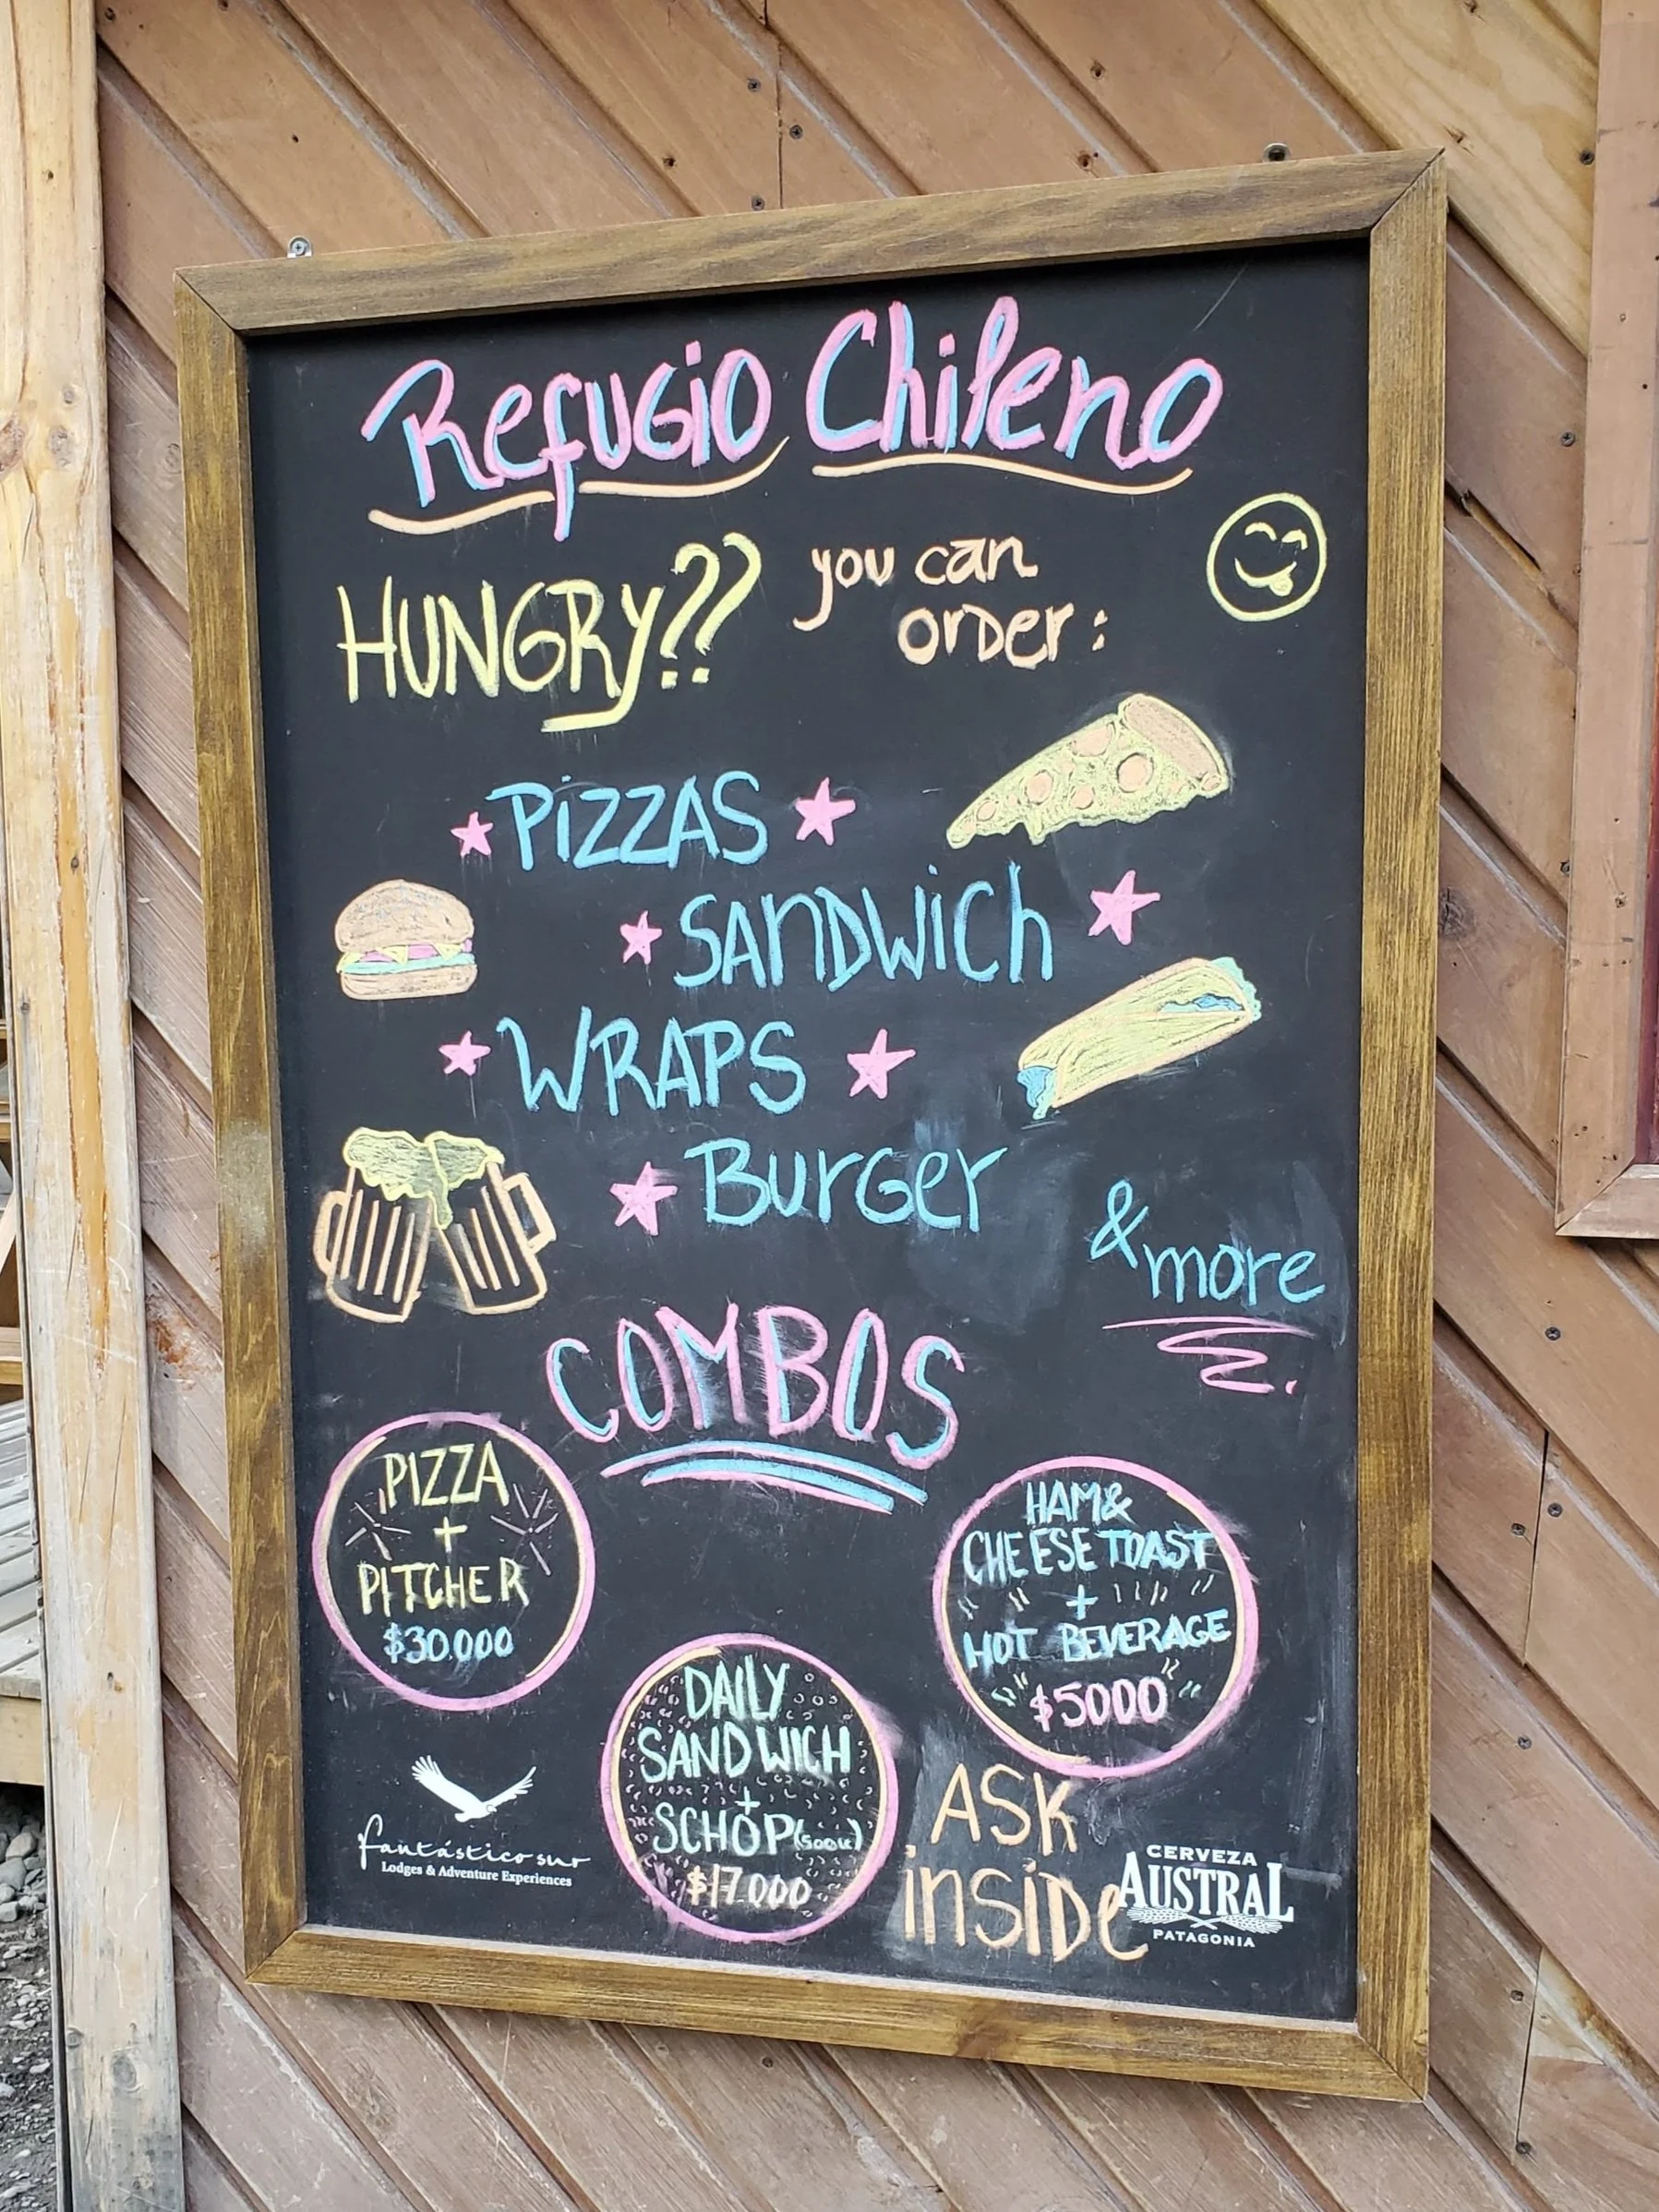 Refugio Chileno
HUNGRY?? you can
order:
PiZZAS
SANDWich
WRAPS
Burger
& more
COMBOS
PIZZA
+
PITCHER
$30.000
HAM &
CHEESE TOAST
+
HOT BEVERAGE
$5000
DAILY
SANDWICH
+
SCHOP (500cc)
$17.000
ASK
inside
fantástico sur
Lodges & Adventure Experiences
CERVEZA
AUSTRAL
PATAGONIA